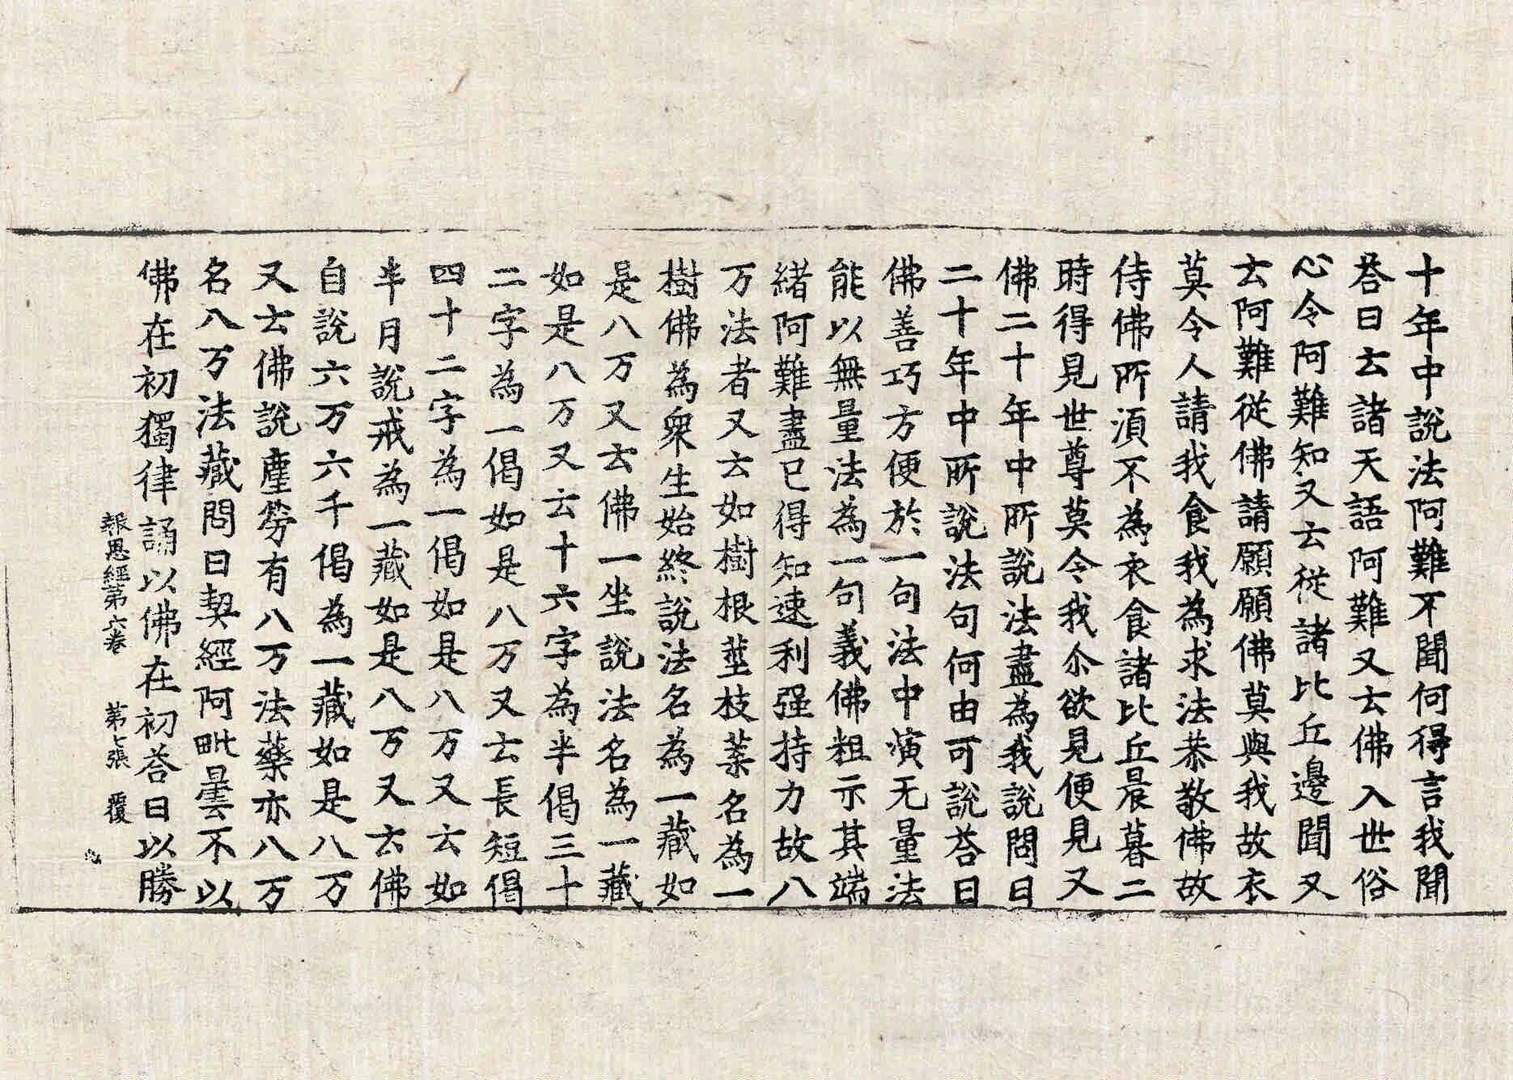 十年中說法阿難不聞何得言我聞
荅曰云諸天語阿難又云佛入世俗
心令阿難知又云從諸比丘邊聞又
云阿難從佛請願願佛莫與我故衣
莫令人請我食我為求法恭敬佛故
侍佛所湏不為衣食諸比丘晨暮二
時得見世尊莫令我尒欲見便見又
佛二十年中所說法盡為我說問曰
二十年中所說法句何由可說荅曰
佛善巧方便於一句法中演无量法
能以無量法為一句義佛粗示其端
緒阿難盡已得知速利强持力故八
万法者又云如樹根莖枝葉名為一
樹佛為衆生始終說法名為一藏如
是八万又云佛一坐說法名為一藏
如是八万又云十六字為半偈三十
二字為一偈如是八万又云長短偈
四十二字為一偈如是八万又云如
半月說戒為一藏如是八万又云佛
自說六万六千偈為一藏如是八万
又云佛說塵勞有八万法藥亦八万
名八万法藏問曰契經阿毗曇不以
佛在初獨律誦以佛在初荅曰以勝
報恩經第六卷 第七張 覆